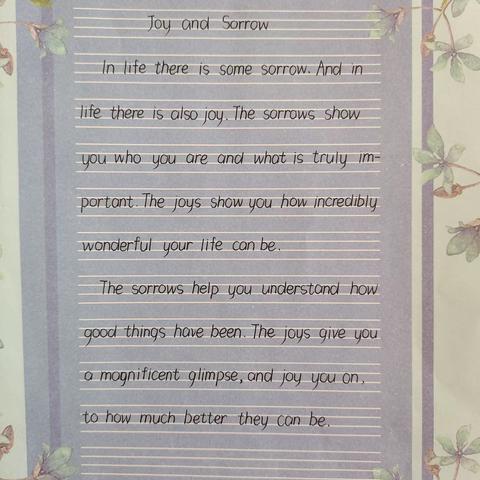 Joy and Sorrow
In life there is some sorrow. And in
life there is also joy. The sorrows show
you who you are and what is truly im-
portant. The joys show you how incredibly
wonderful your life can be.
The sorrows help you understand how
good things have been. The joys give you
a magnificent glimpse, and joy you on,
to how much better they can be.